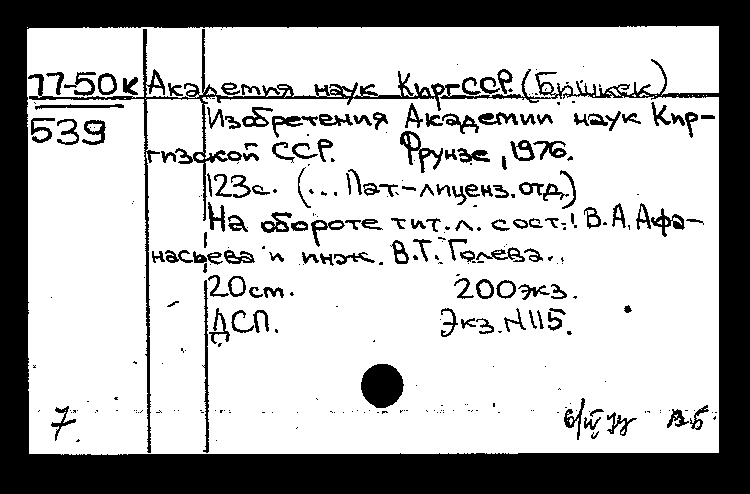 77-50к Академия наук КиргССР. (Бишкек)
539
Изобретения Академии наук Кир-
гизской ССР. Фрунзе, 1976.
123с. (... Пат.-лиценз. отд.)
На обороте тит. л. сост.: В.А. Афа-
насьева и инж. В.Т. Голева.
20см. 200экз.
ДСП. Экз. N115.
7. В.Б.